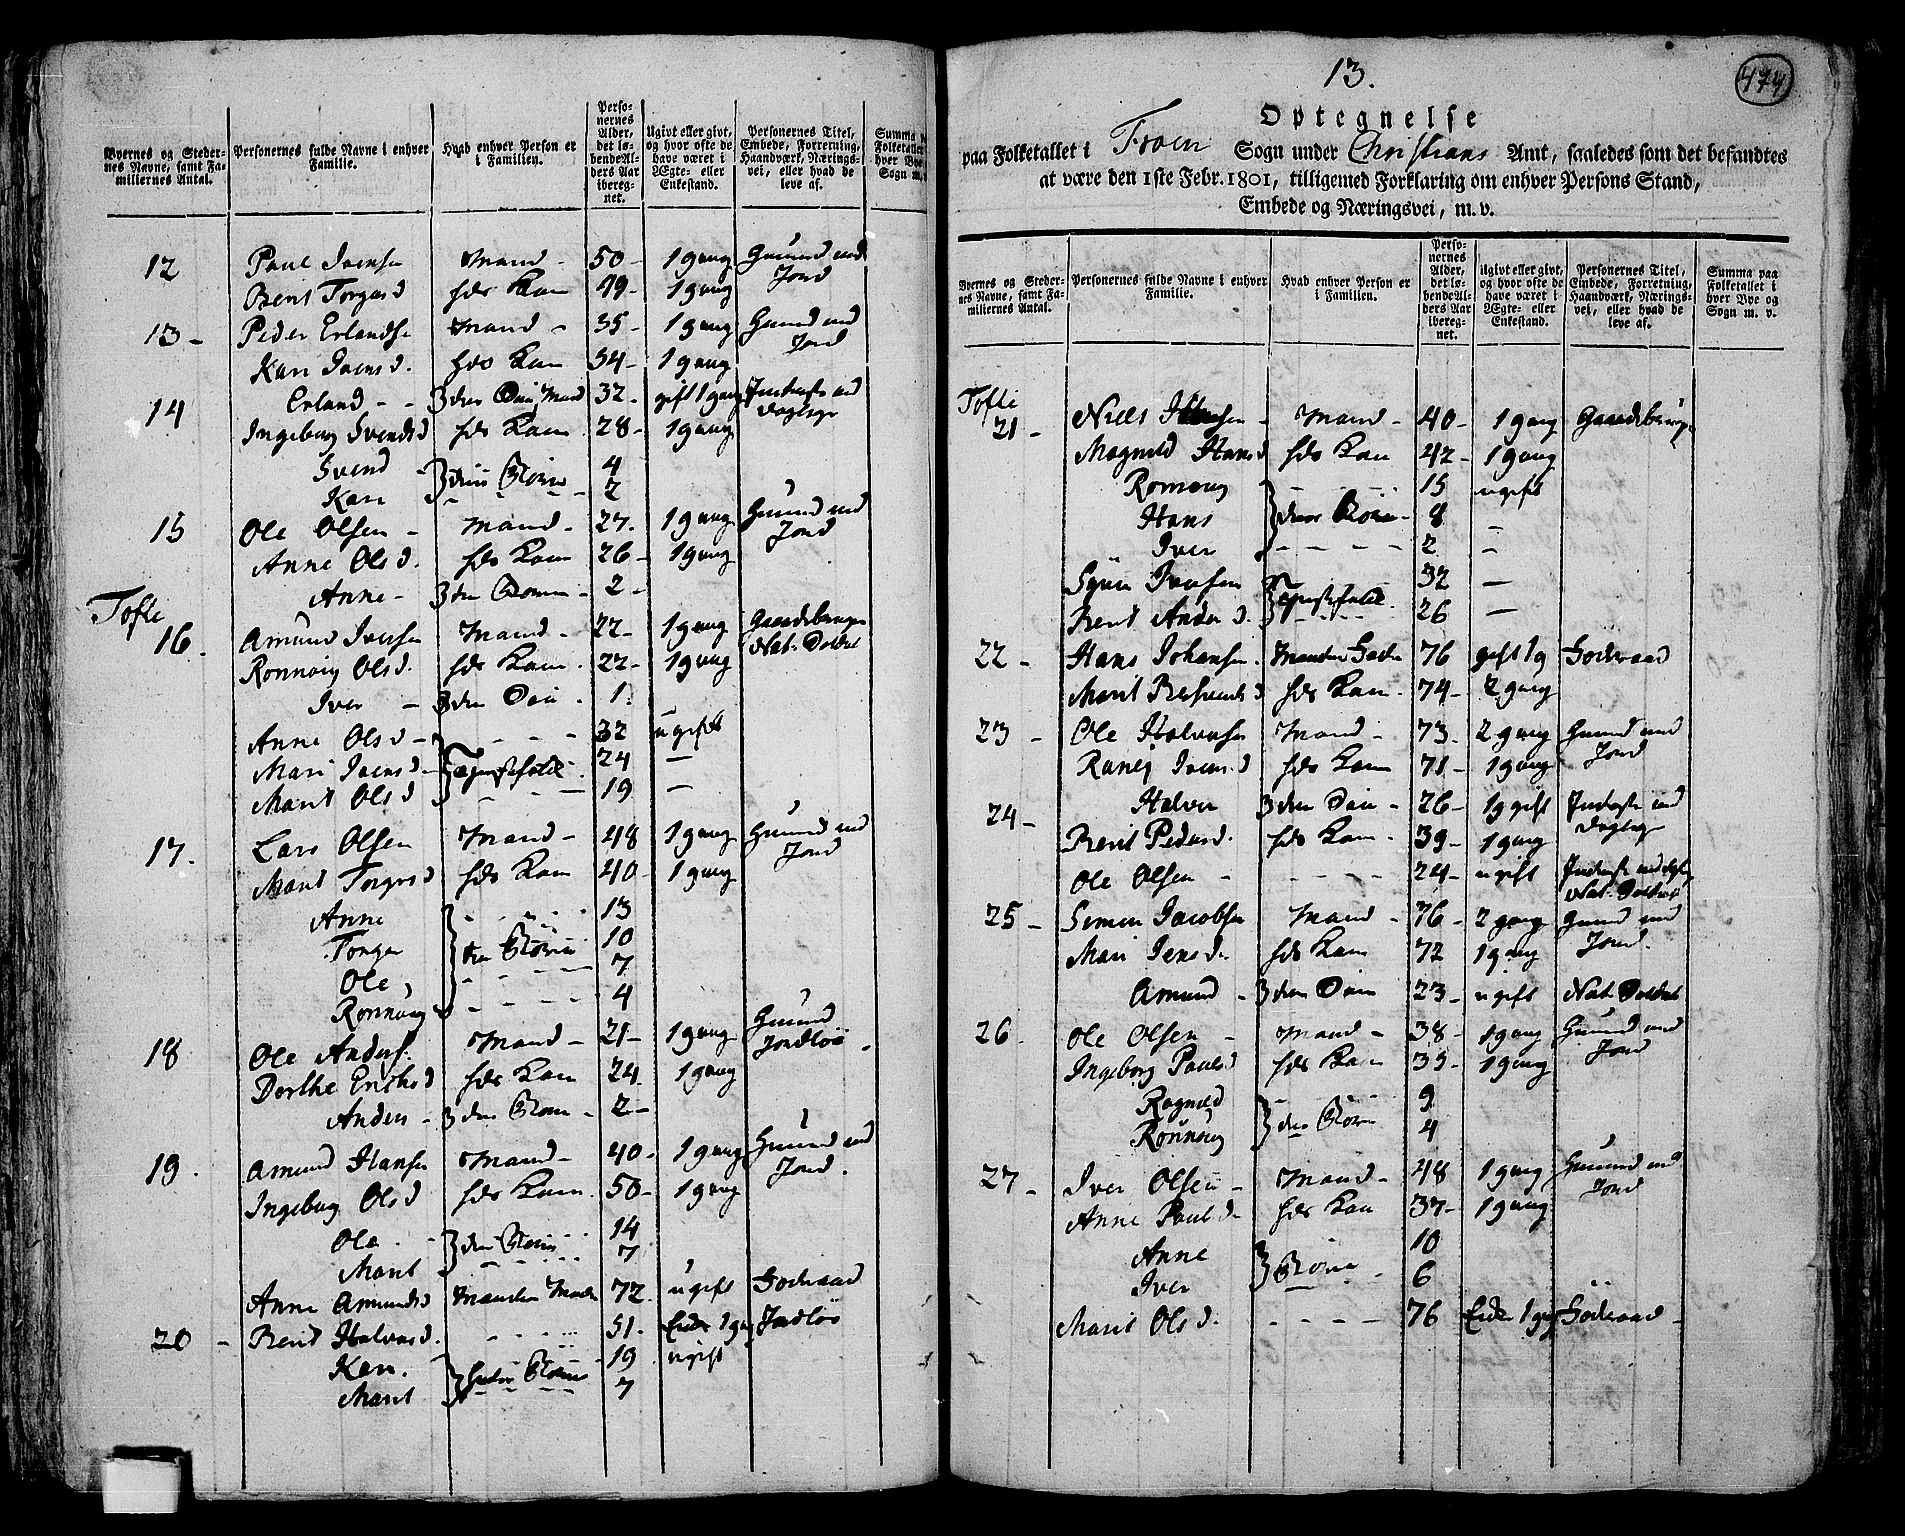 Byernes og Steder-
nes Navne, samt Fa-
miliernes Antal.
Personernes fulde Navne i enhver
Familie.
Hvad enhver Person er
i Familien.
Perso-
nernes
Alder,
det lø-
bende Al-
ders Aar
ibereg-
net.
Ugivt eller givt,
og hvor ofte de
have været i
Ægte- eller
Enkestand.
Personernes Titel,
Embede, Forretning,
Haandværk, Nærings-
vei, eller hvad de
leve af.
Summa
Folketallet
hver Bye
Sogn m.
12 Paul Iversen Mand 50 1 gang Huusmd med Jord
Berit Torgersd hds Kone 49 1 gang
13 Peder Erlandse Mand 35 1 gang Huusmd med Jord
Kari Iversd. hds Kone 54 1 gang
14 Erland deres Søn, Mand 32 gift 1 gang Inderste med dagleye
Ingeborg Svendsd hds Kone 28 1 gang
Svend deres Børn 4
Kari 2
15 Ole Olsen Mand 27 1 gang Huusmd med Jord
Anne Olsd. hds Kone 26 1 gang
Anne deres Børn 2
Tofte
16 Amund Iversen Mand 22 1 gang Gaardebruger Nat. Soldat
Ronnoug Olsd. hds Kone 22 1 gang
Iver deres Søn 1
Anne Olsd 32 ugift
Mari Iversd Tienestefolk 24 —
Marit Olsd 19 —
17 Lars Olsen Mand 48 1 gang Huusmd med Jord
Marit Torgersd hds Kone 40 1 gang
Anne 13
Torger deres Børn 10
Ole 7
Ronnoug 4
18 Ole Anders. Mand 21 1 gang Huusmd Jordløs
Dorthe Erichsd hds Kone 24 1 gang
Anders deres Børn 2
19 Amund Hansen Mand 40 1 gang Huusmd med Jord.
Ingeborg Olsd hds Kone 50 1 gang
Ole deres Børn 14
Marit 7
Anne Amundsd Mandens Moder 72 ugift Føderaad
20 Berit Halvorsd 51 Enke 1 gang Jordløs
Kari hendes Børn 19 ugift
Marit 7
13.
474
Optegnelse
paa Folketallet i Froen Sogn under Christians Amt, saaledes som det befandtes
at være den 1ste Febr. 1801, tilligemed Forklaring om enhver Persons Stand,
Embede og Næringsvei, m. v.
Byernes og Steder-
nes Navne, samt Fa-
miliernes Antal.
Personernes fulde Navne i enhver
Familie.
Hvad enhver Person er
i Familien.
Perso-
nernes
Alder,
det lø-
bende Al-
ders Aar
ibereg-
net.
Ugivt eller givt,
og hvor ofte de
have været i
Ægte- eller
Enkestand.
Personernes Titel,
Embede, Forretning,
Haandværk, Nærings-
vei, eller hvad de
leve af.
Summa paa
Folketallet i
hver Bye og
Sogn m. v.
Tofte
21 Niels Hansen Mand 40 1 gang Gaardebruger
Magnild Hansd hds Kone 42 1 gang
Romoug 15 ugift
Hans deres Børn 8 —
Iver 2 —
Syver Iversen Tienestefolk 32 —
Berit Andersd. 26 —
22 Hans Johansen Mandens Fader 76 gift 1 g Føderaad
Marit hds Kone 74 2 gang
23 Ole Halvorsen Mand 73 2 gang Huusmd med Jord
Ranej Iversd hds Kone 71 1 gang
24 Halvor deres Søn 26 1 g gift Inderste med dagleye
Berit Pedersd. hds Kone 39 1 gang
Ole Olsen 24 ugift Inderste med Nat. Soldat
25 Simen Jacobsen Mand 76 2 gang Huusmd med Jord.
Mari Jensd. hds Kone 72 1 gang
Amund deres Søn 23 ugift Nat. Soldat
26 Ole Olsen Mand 38 1 gang Huusmd med Jord
Ingeborg Paulsd hds Kone 39 1 gang
Ragnild deres Børn 9
Ronnoug 4
27 Iver Olsen Mand 48 1 gang Huusmd med Jord
Anne Paulsd hds Kone 37 1 gang
Anne Børn 10
Iver 6
Marit Olsd. 76 Enke 1 gang Føderaad